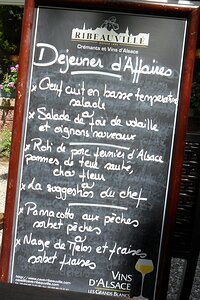 RIBEAUVILLÉ
Crémants et Vins d'Alsace
Dejeuner d'Affaires
x Oeuf cuit en basse temperature
salade
x Salade de foie de volaille
et oignons nouveaux
x Roti de porc fermier d'Alsace
pommes de terre sauté,
chou fleur
x La suggestion du chef
x Pannacotta aux pêches
sorbet pêches
x Nage de Melon et fraises
sorbet fraises
VINS
D'ALSACE
LES GRANDS BLANCS